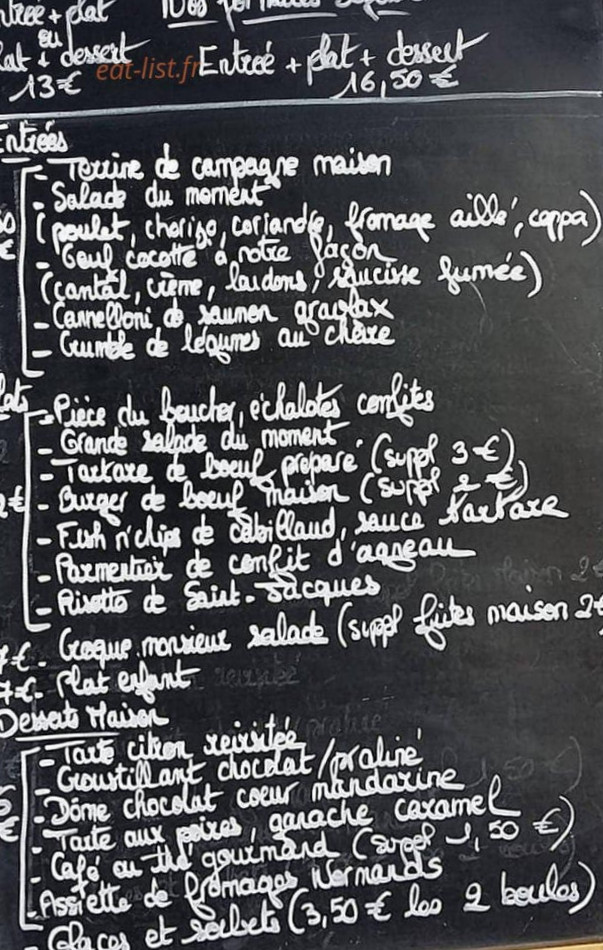 ntrée + plat
ou
lat + dessert
13€
Entrée + plat + dessert
16,50 €
eat-list.fr
Entrées
- Terrine de campagne maison
- Salade du moment
(poulet, chorizo, coriandre, fromage aillé, coppa)
- Oeuf cocotte à notre façon
(cantal, crème, lardons, saucisse fumée)
- Cannelloni de saumon gravlax
- Crumble de légumes au chèvre
lats
- Pièce du boucher, échalotes confites
- Grande salade du moment
- Tartare de boeuf préparé (suppl 3 €)
- Burger de boeuf maison (suppl 2 €)
- Fish n'chips de cabillaud, sauce tartare
- Parmentier de confit d'agneau
- Risotto de Saint-Jacques
7€ - Croque monsieur salade (suppl frites maison 2€
7€ - Plat enfant
Desserts Maison
- Tarte citron revisitée
- Croustillant chocolat / praliné
- Dôme chocolat coeur mandarine
- Tarte aux poires, ganache caramel
- Café ou thé gourmand (suppl 1,50 €)
- Assiette de fromages Normands
- Glaces et sorbets (3,50 € les 2 boules)